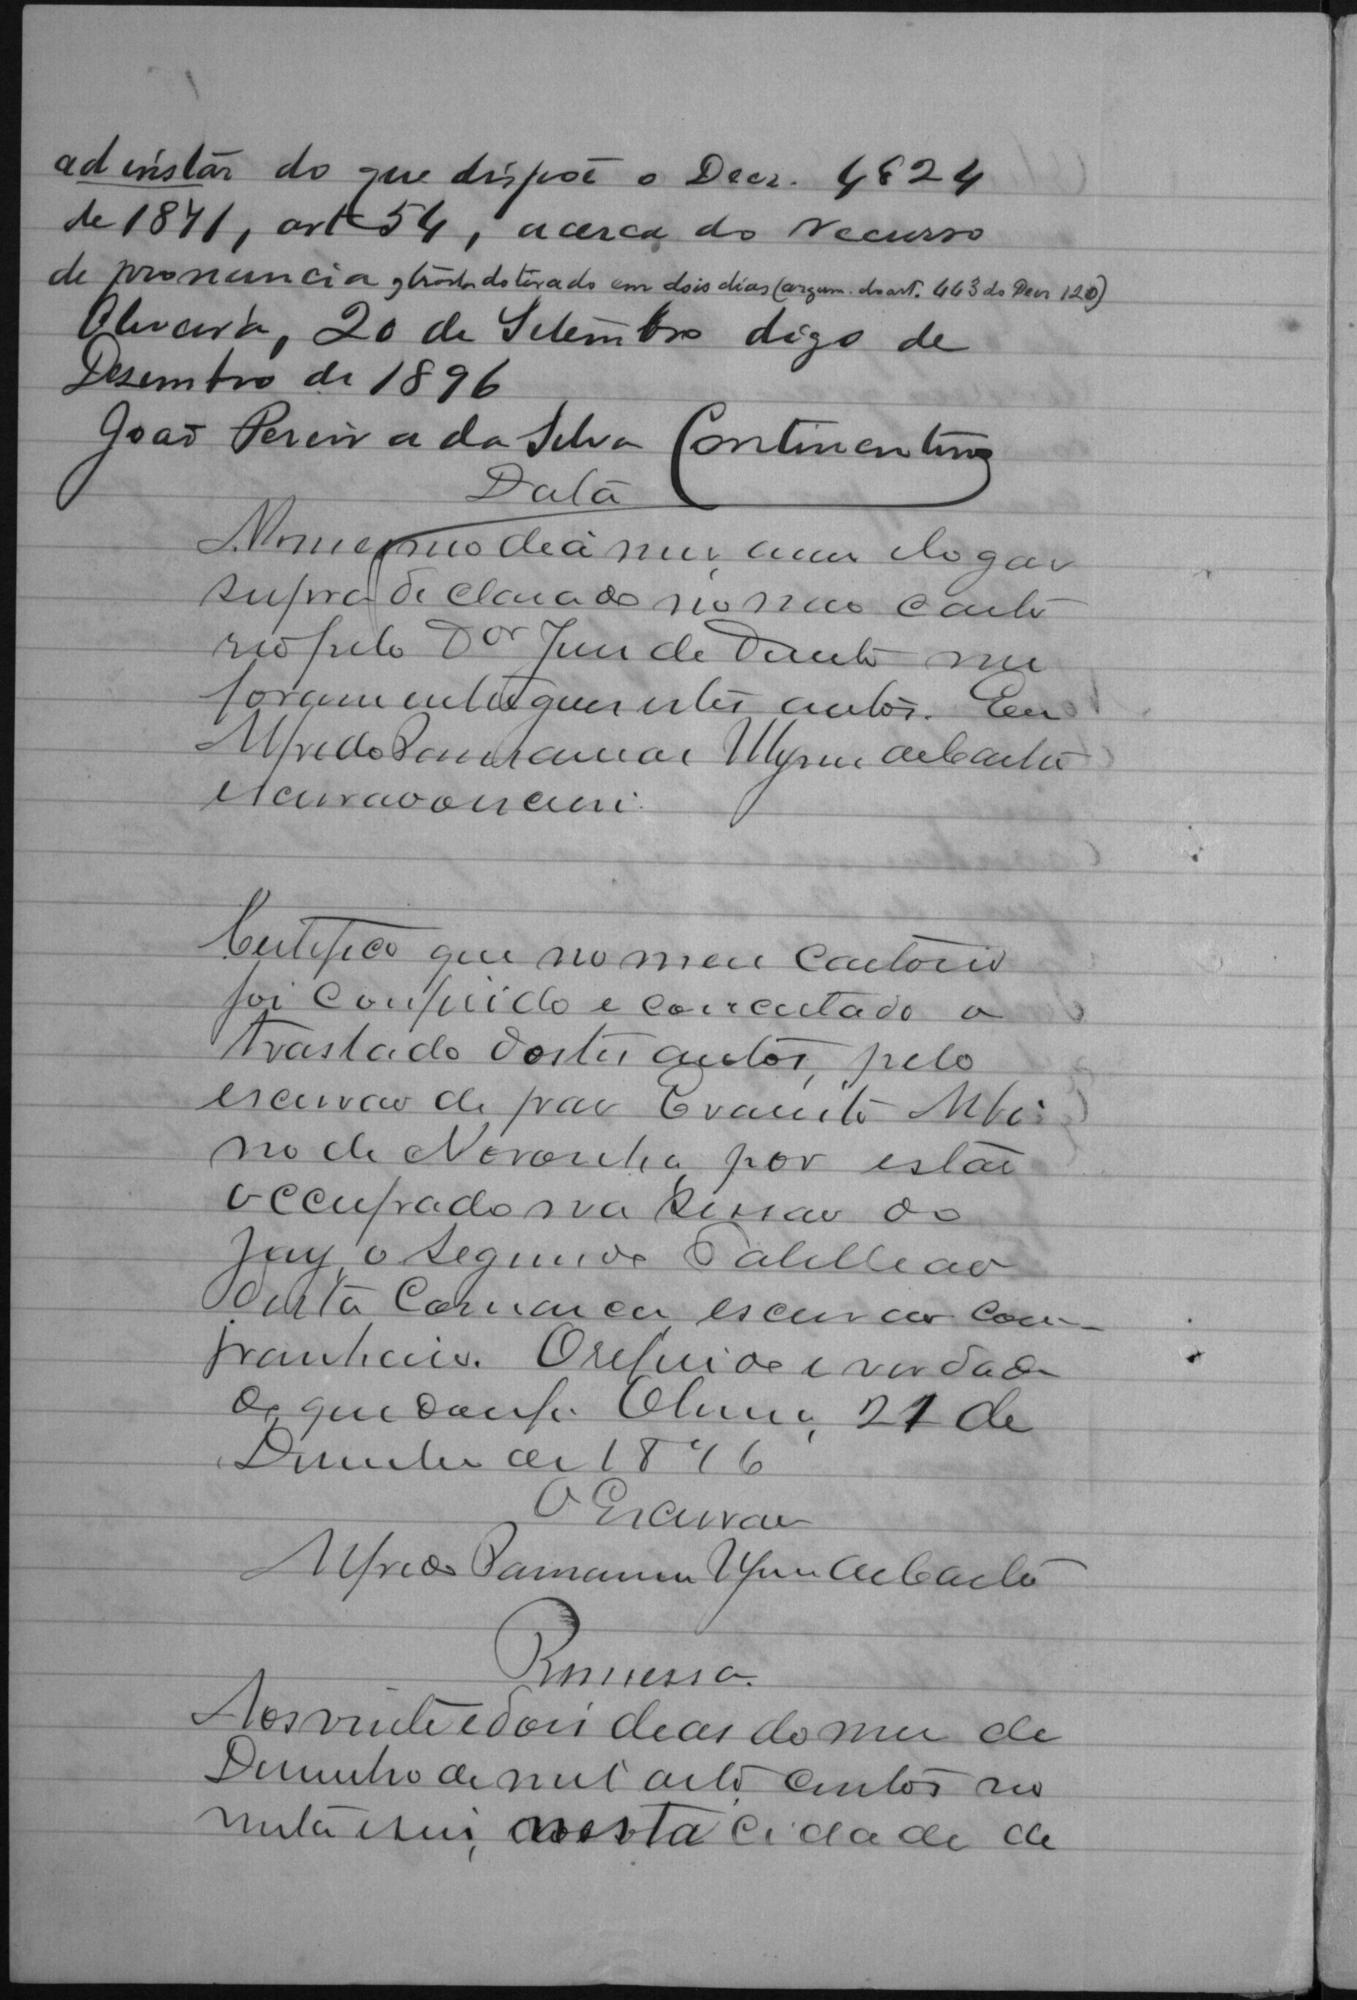 ad instar do que dispoē o Decr. 4824
de 1871, art 54, acerca do recurso
de pronuncia, traslado tirado em dois dias (argum. do art. 443 do Decr 120)
Oliveira, 20 de Setembro digo de
Desembro de 1896
Joaõ Pereira da Silva Continentino
Data
No mesmo dia mez, anno e logar
supra declarado no meu carto
rio pelo Dor Juiz de Direito me
foram entregues estes autos. Eu
Alfredo de Castro
escrivão escrevi.
Certifico que no meu cartorio
foi conferido e concertado o
traslado destes autos, pelo
escrivão de paz Evaristo Albi
no de Noronha, por estar
occupado na sessão do
Jury o segundo Tabellião
desta Comarca escrivão com-
panheiro. O referido é verdade
de que dou fé. Oliveira, 21 de
Dezembro de 1896
O Escrivão
Alfredo de Castro
Remessa.
Aos vinte e dois dias do mez de
Dezembro de mil oito centos no
venta e seis, nesta cidade de